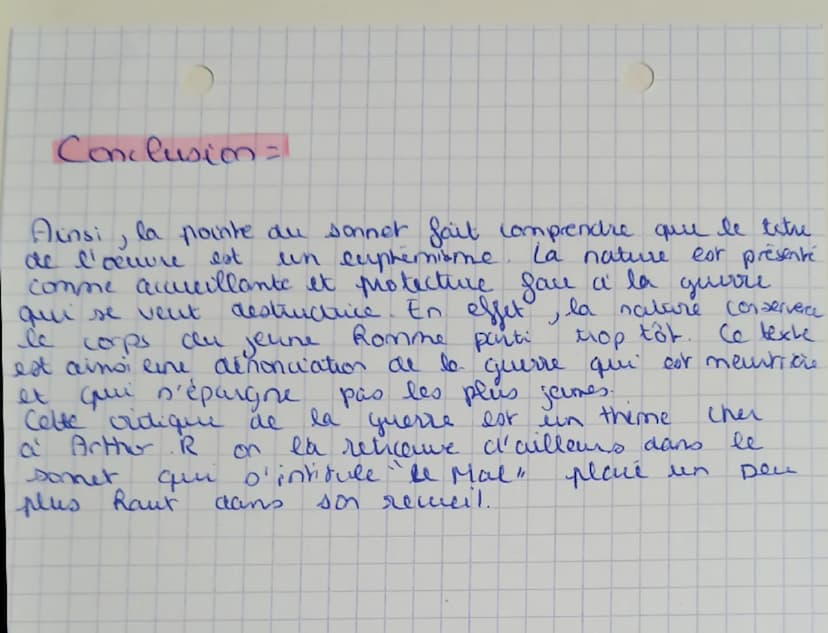 Conclusion =
Ainsi, la pointe du sonnet fait comprendre que le titre
de l'oeuvre est un euphémisme. La nature est présenté
comme accueillante et protectrice face à la guerre
qui se veut destructrice. En effet, la nature conservera
le corps du jeune homme parti trop tôt. Ce texte
est ainsi une dénonciation de la guerre qui est meurtrière
et qui n'épargne pas les plus jeunes.
Cette critique de la guerre est un thème cher
à Arthur .R on la retrouve d'ailleurs dans le
sonnet qui s'intitule "le Mal" placé un peu
plus haut dans son recueil.